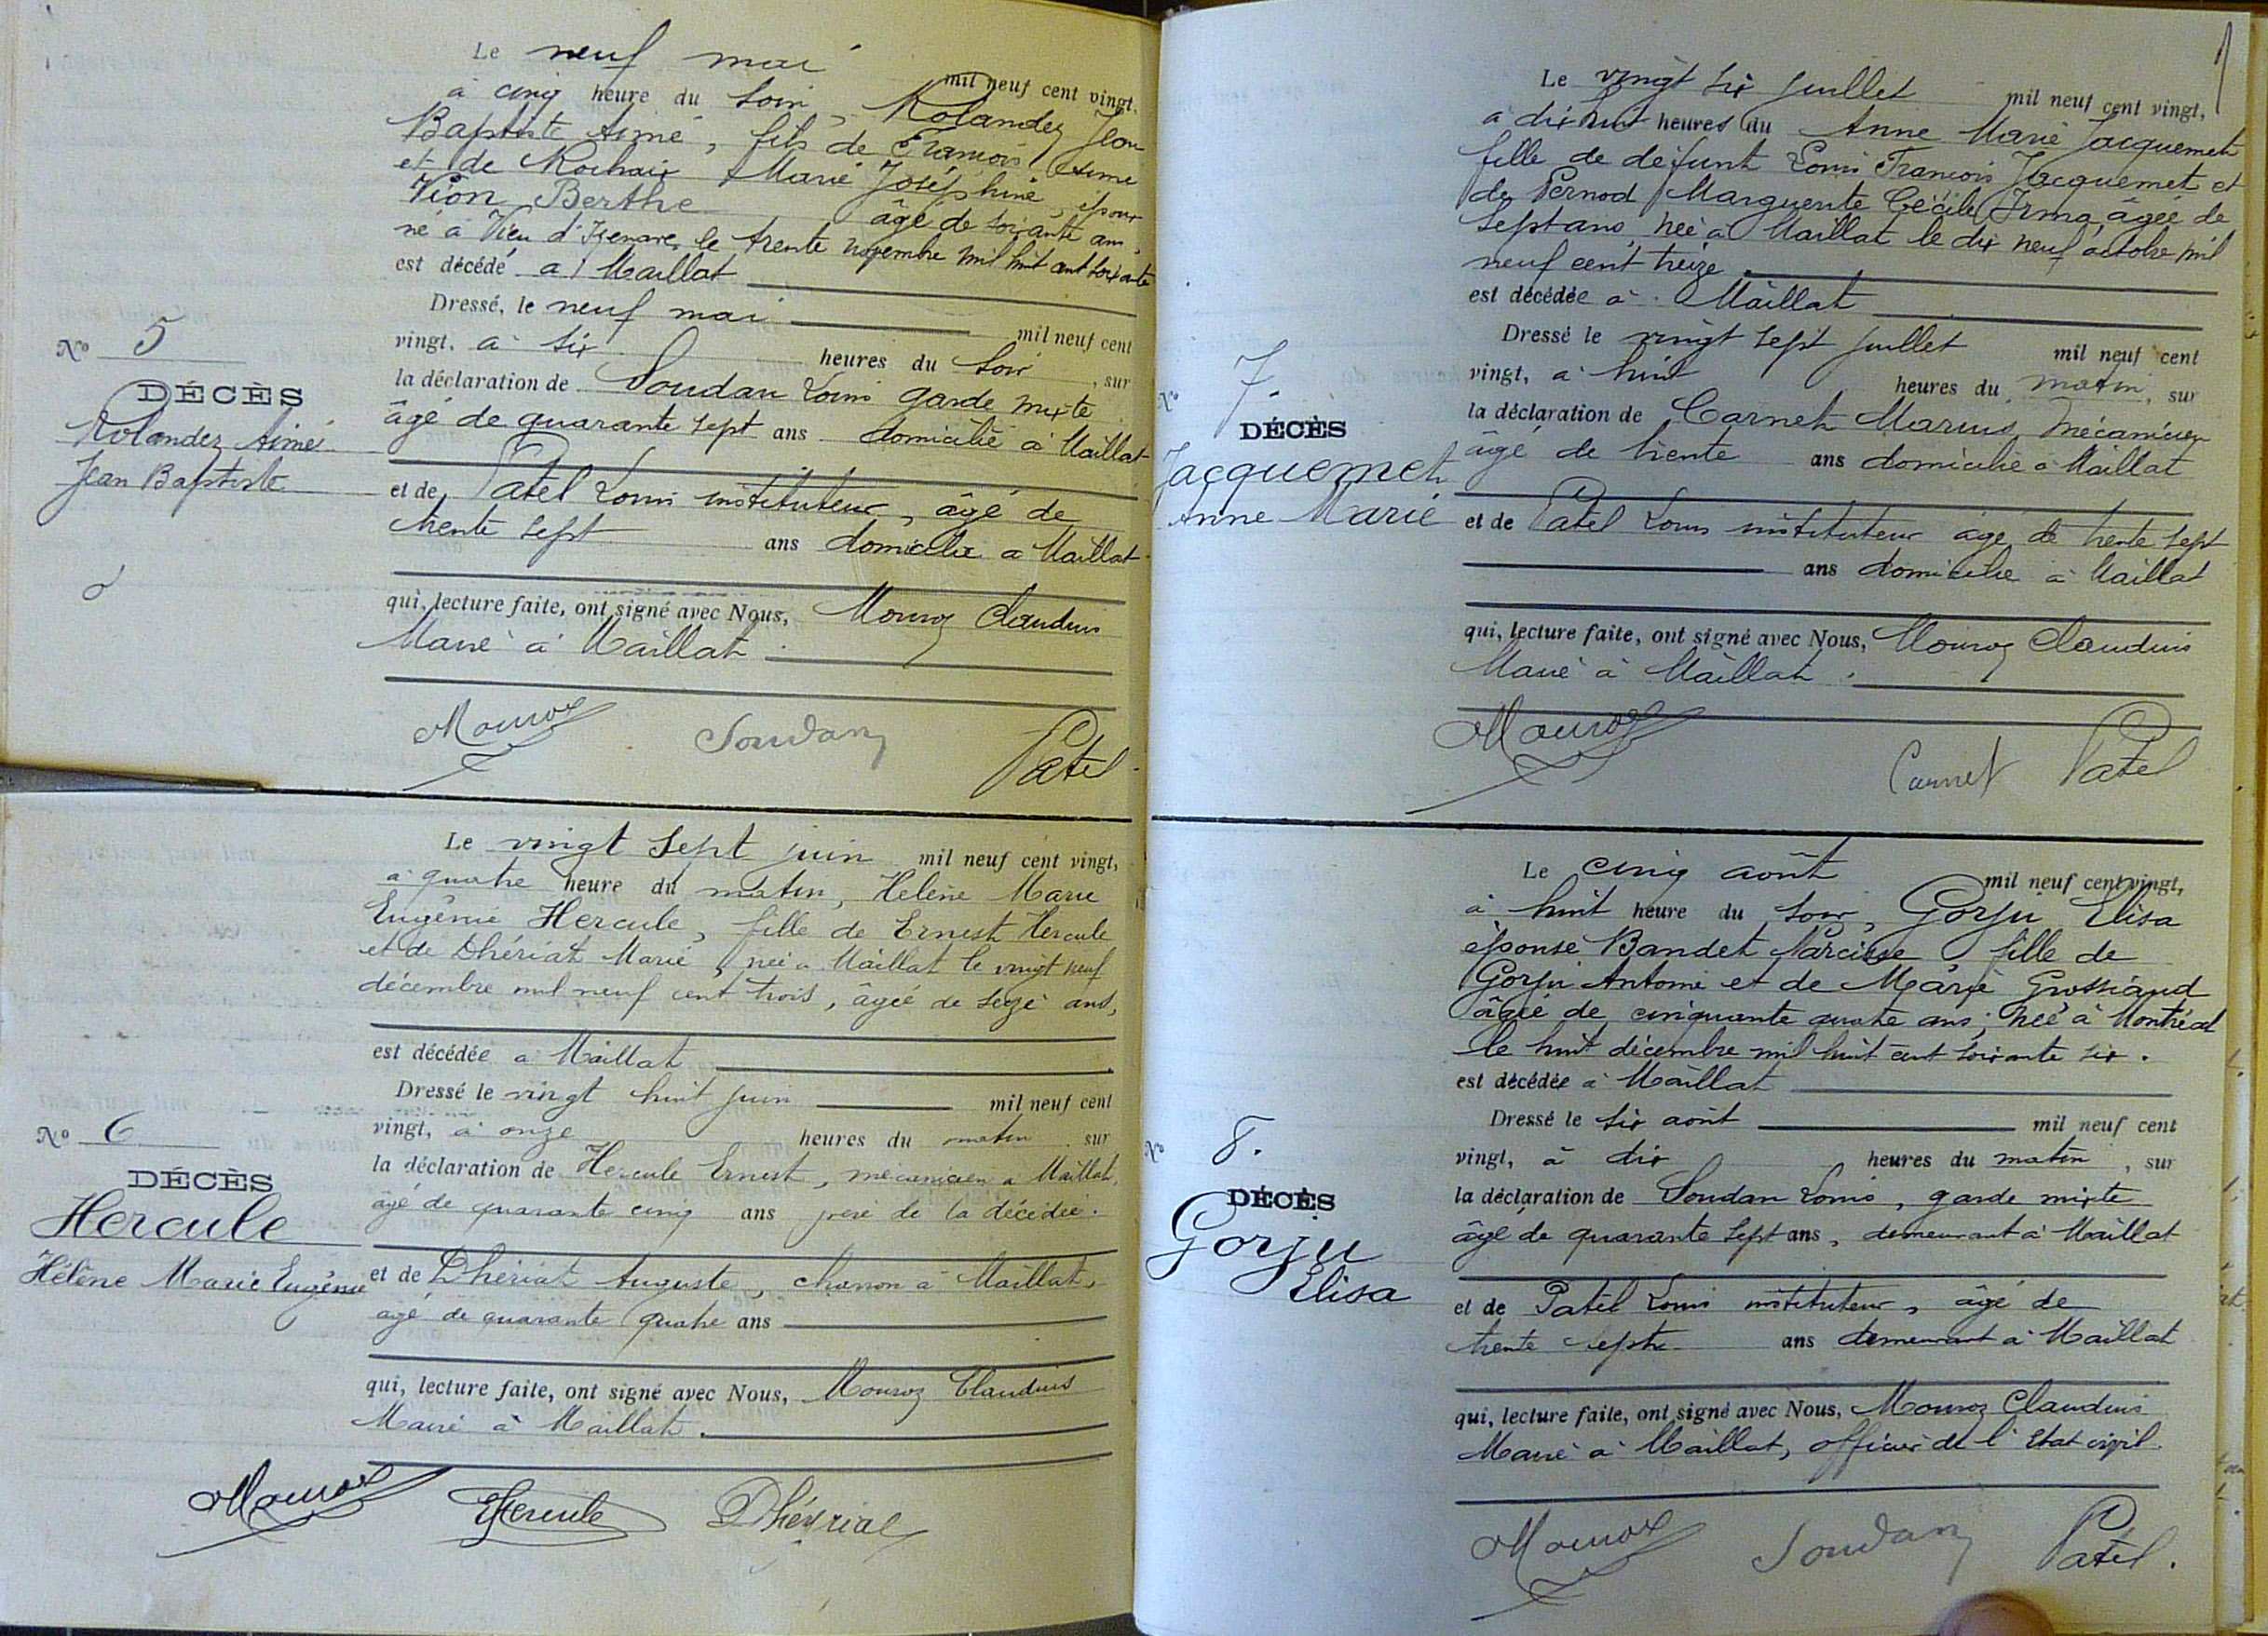 Le neuf mai mil neuf cent vingt,
à cinq heure du soir, Rolandez Jean
Baptiste Aimé, fils de François Aimé
et de Rochaix Marie Joséphine, époux
Vion Berthe âgé de soixante ans,
né à Vieu d'Izenave, le trente novembre mil huit cent soixante
est décédé à Maillat
Dressé, le neuf mai mil neuf cent
vingt, à six heures du soir, sur
la déclaration de Soudan Louis garde mixte
âgé de quarante sept ans domicilié à Maillat
et de Patel Louis instituteur, âgé de
trente sept ans domicilié à Maillat
qui, lecture faite, ont signé avec Nous, Mouroz Claudius
Maire à Maillat.
Nº 5
DÉCÈS
Rolandez Aimé
Jean Baptiste
Mouroz Soudan Patel
Le vingt sept juin mil neuf cent vingt,
à quatre heure du matin, Hélène Marie
Eugénie Hercule, fille de Ernest Hercule
et de Dhériat Marie, née à Maillat le vingt neuf
décembre mil neuf cent trois, âgée de seize ans,
est décédée à Maillat
Dressé le vingt huit juin mil neuf cent
vingt, à onze heures du matin, sur
la déclaration de Hercule Ernest, mécanicien à Maillat,
âgé de quarante cinq ans père de la décédée.
et de Dhériat Auguste, charron à Maillat,
âgé de quarante quatre ans
qui, lecture faite, ont signé avec Nous, Mouroz Claudius
Maire à Maillat.
Nº 6
DÉCÈS
Hercule
Hélène Marie Eugénie
Mouroz EHercule Dhériat
Le vingt six juillet mil neuf cent vingt,
à dix huit heures du Anne Marie Jacquemet
fille de défunt Louis François Jacquemet et
de Pernod Marguerite Cécile Irma, âgée de
sept ans, née à Maillat le dix neuf octobre mil
neuf cent treize
est décédée à Maillat
Dressé le vingt sept juillet mil neuf cent
vingt, à huit heures du matin, sur
la déclaration de Carnet Marius, mécanicien
âgé de trente ans domicilié à Maillat
et de Patel Louis instituteur âgé de trente sept
ans domicilié à Maillat
qui, lecture faite, ont signé avec Nous, Mouroz Claudius
Maire à Maillat.
Nº 7.
DÉCÈS
Jacquemet
Anne Marie
Mouroz Carnet Patel
Le cinq août mil neuf cent vingt,
à huit heure du soir, Gorju Elisa
épouse Bandet Narcisse fille de
Gorju Antoine et de Marie Grossiand
âgée de cinquante quatre ans; née à Montréal
le huit décembre mil huit cent soixante six.
est décédée à Maillat
Dressé le six août mil neuf cent
vingt, à dix heures du matin, sur
la déclaration de Soudan Louis, garde mixte
âgé de quarante sept ans, demeurant à Maillat
et de Patel Louis instituteur, âgé de
trente sept ans demeurant à Maillat
qui, lecture faite, ont signé avec Nous, Mouroz Claudius
Maire à Maillat, officier de l'Etat civil.
Nº 8.
DÉCÈS
Gorju
Elisa
Mouroz Soudan Patel.